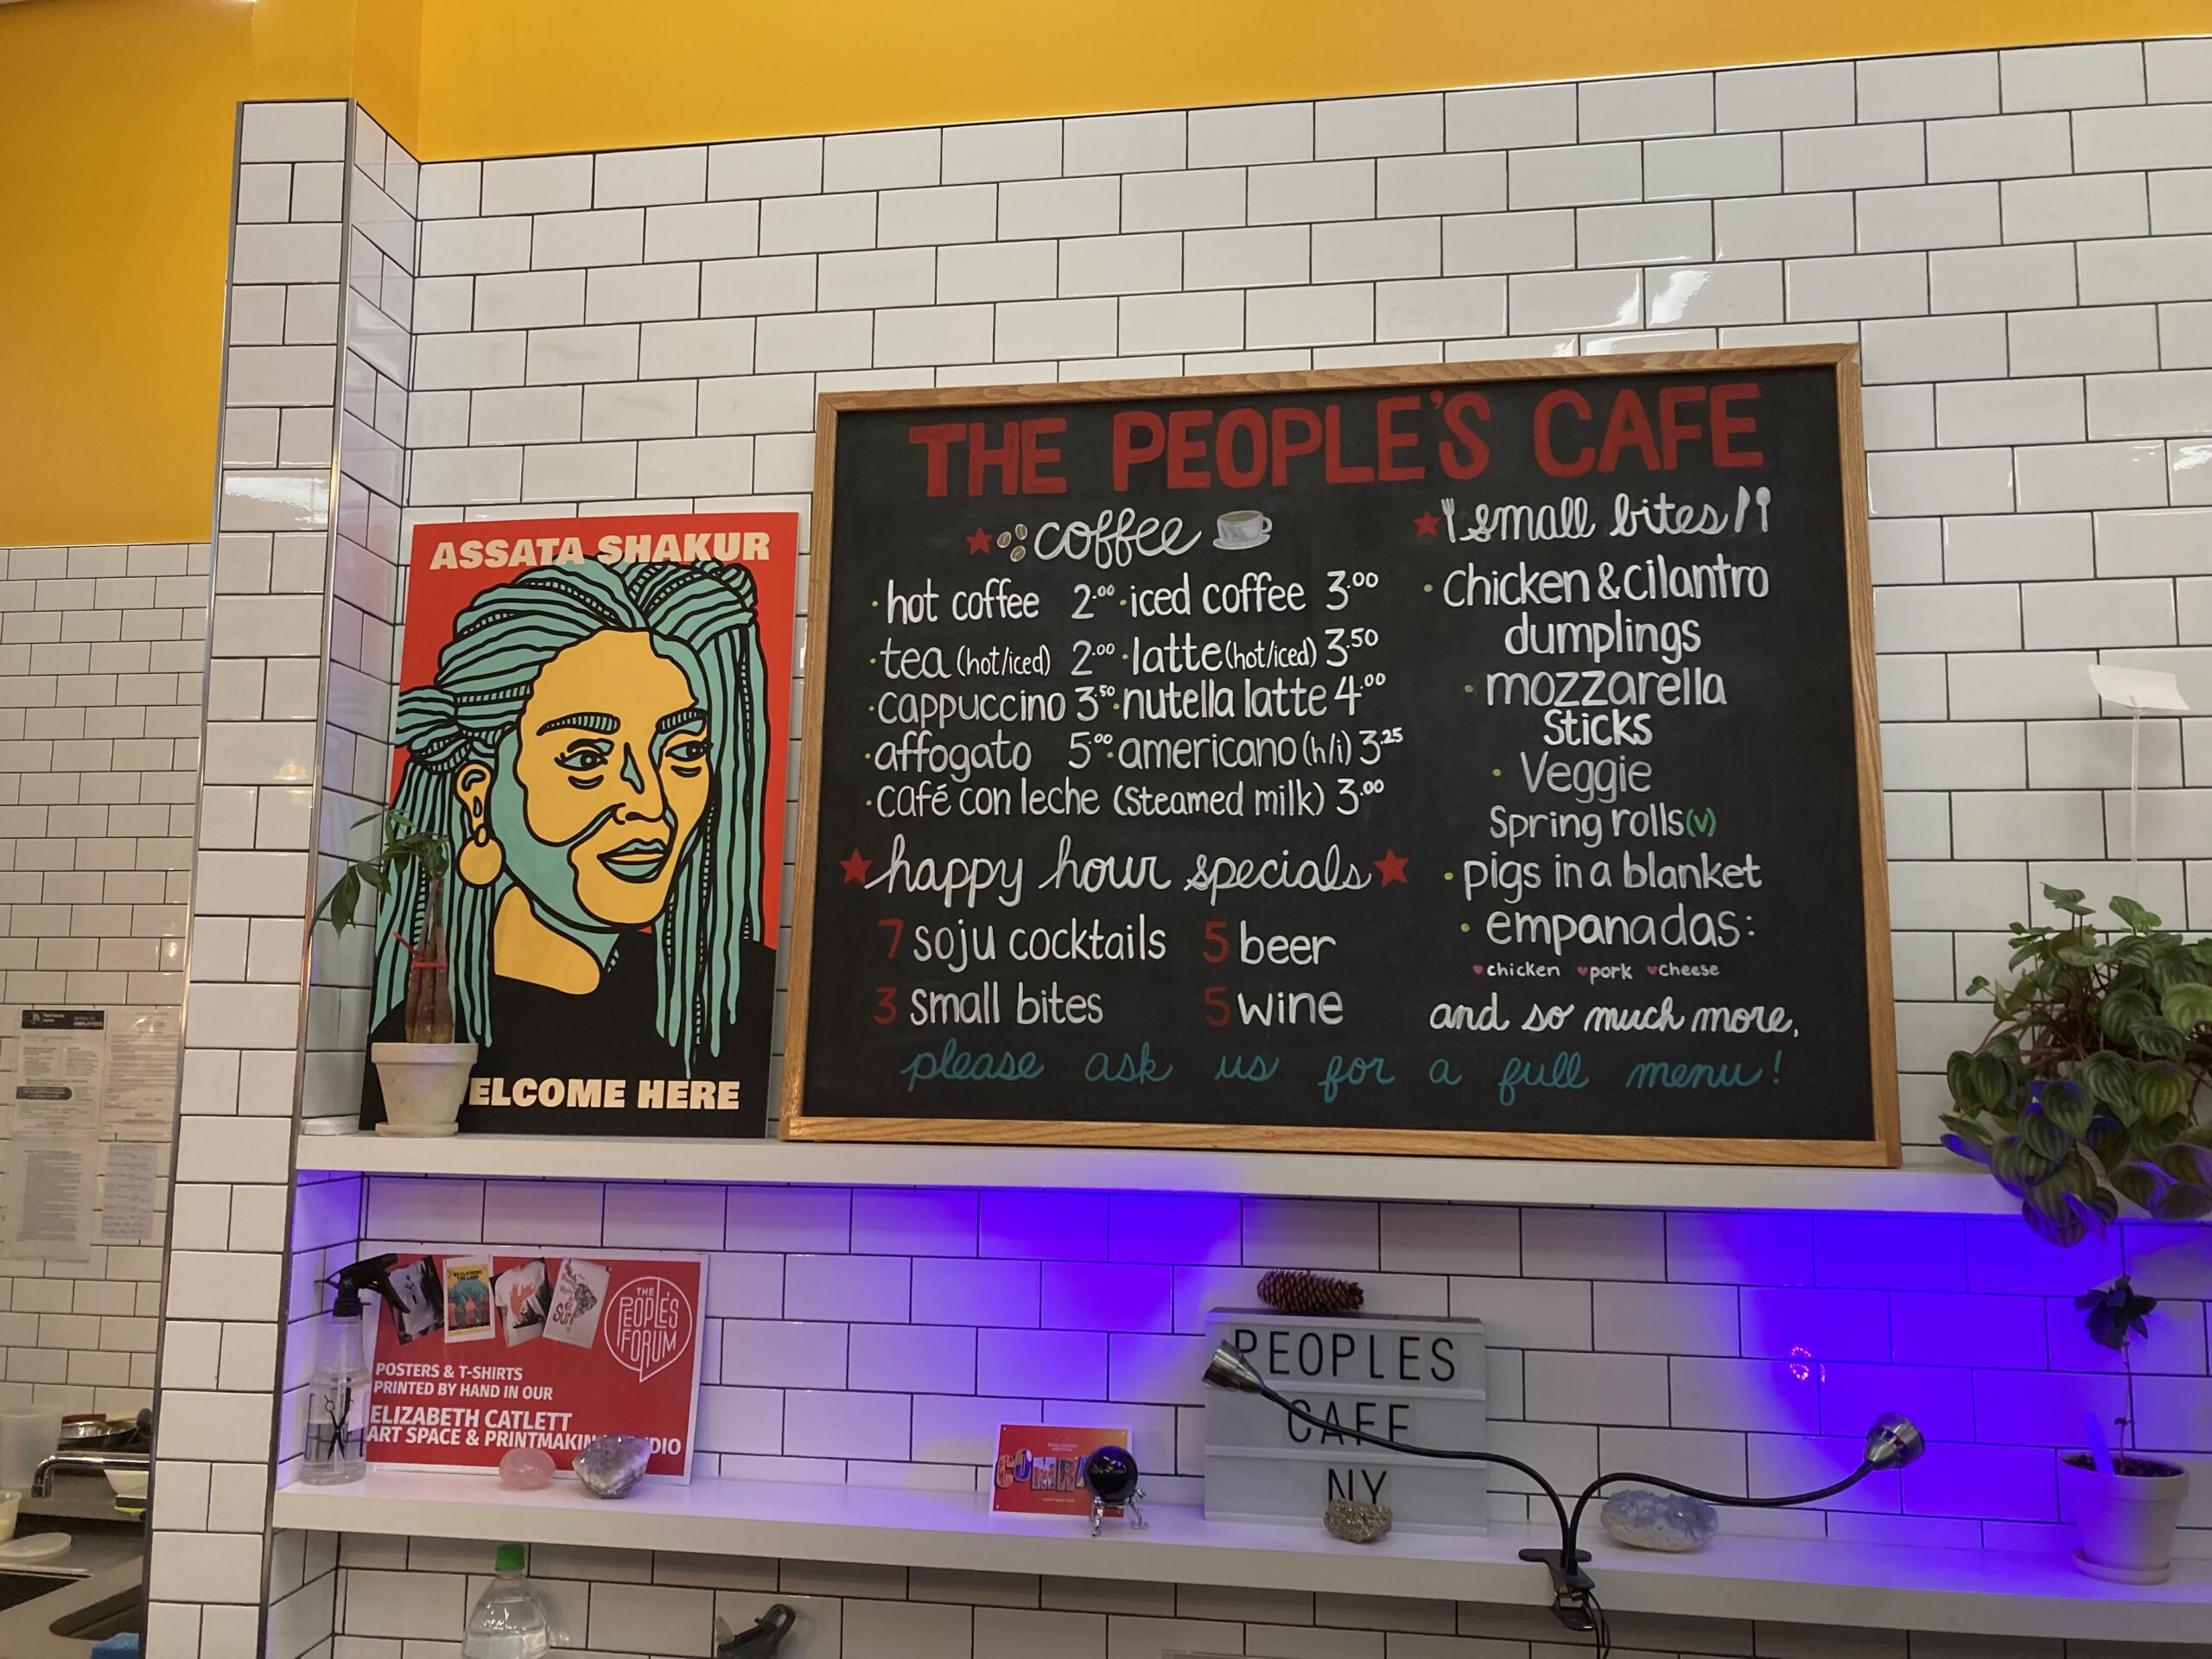 ASSATA SHAKUR
ELCOME HERE
THE PEOPLE'S CAFE
coffee
hot coffee 2.00 · iced coffee 3.00
· tea (hot/iced) 2.00 · latte (hot/iced) 3.50
· cappuccino 3.50 · nutella latte 4.00
· affogato 5.00 · americano (h/i) 3.25
· café con leche (steamed milk) 3.00
happy hour specials
7 soju cocktails 5 beer
3 small bites 5 wine
small bites
· chicken & cilantro
dumplings
· mozzarella
sticks
· Veggie
Spring rolls (v)
· pigs in a blanket
· empanadas:
chicken pork cheese
and so much more,
please ask us for a full menu!
THE
PEOPLE'S
FORUM
POSTERS & T-SHIRTS
PRINTED BY HAND IN OUR
ELIZABETH CATLETT
ART SPACE & PRINTMAKIN DIO
COMRA
PEOPLES
CAFE
NY